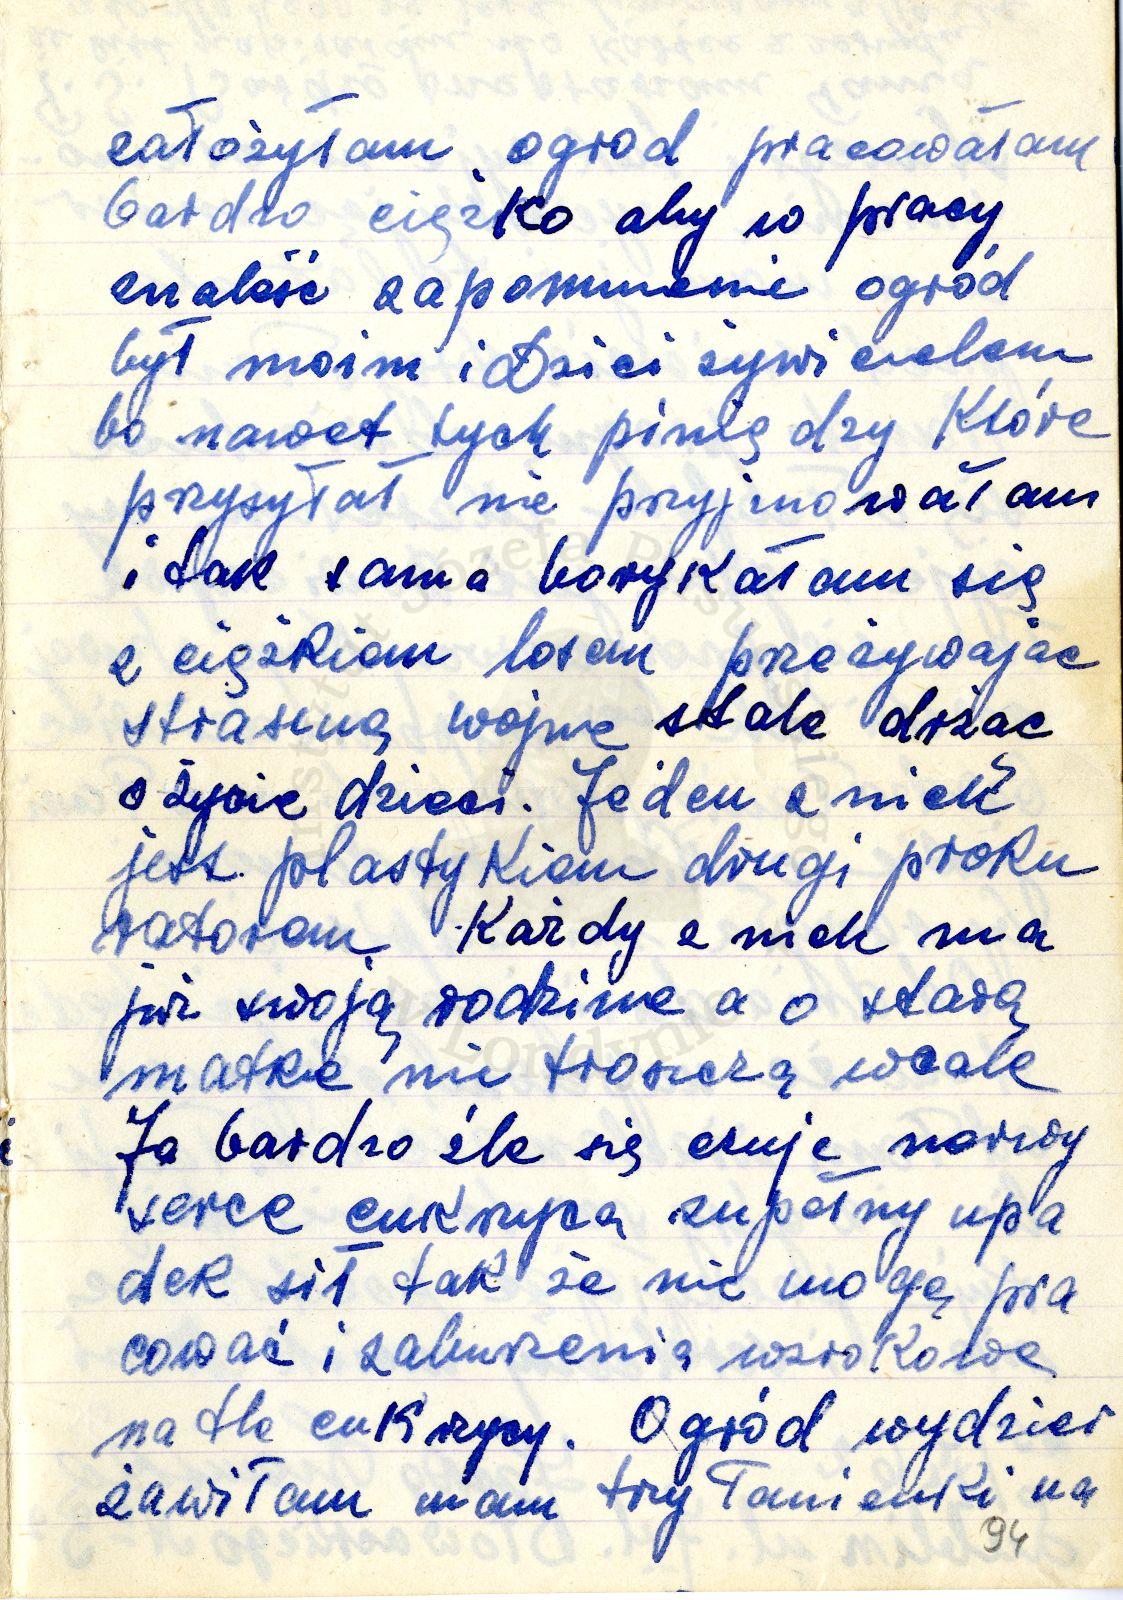 załozyłam ogrod pracowałam
bardzo ciężko aby w pracy
znaleść zapomnienie ogród
był moim i Dzieci żywicielem
bo nawet tych piniędzy Które
przysyłał nie przyjmowałam
i tak sama borykałam się
z ciężkiem losem przeżywając
straszną wojnę stale drżąc
o życie dzieci. Jeden z nich
jest plastykiem drugi proku
ratorem Każdy z nich ma
już swoją rodzinę a o starą
matkę nie troszczą wcale
Ja bardzo źle się czuje nerwy
serce cukrzycą zupełny upa
dek sił tak że nie mogę pra
cować i zaburzenia wzrokowe
na tle cukrzycy. Ogród wydzier
żawiłam mam trzy Tamienki na
94
Instytut Józefa Piłsudskiego
w Londynie